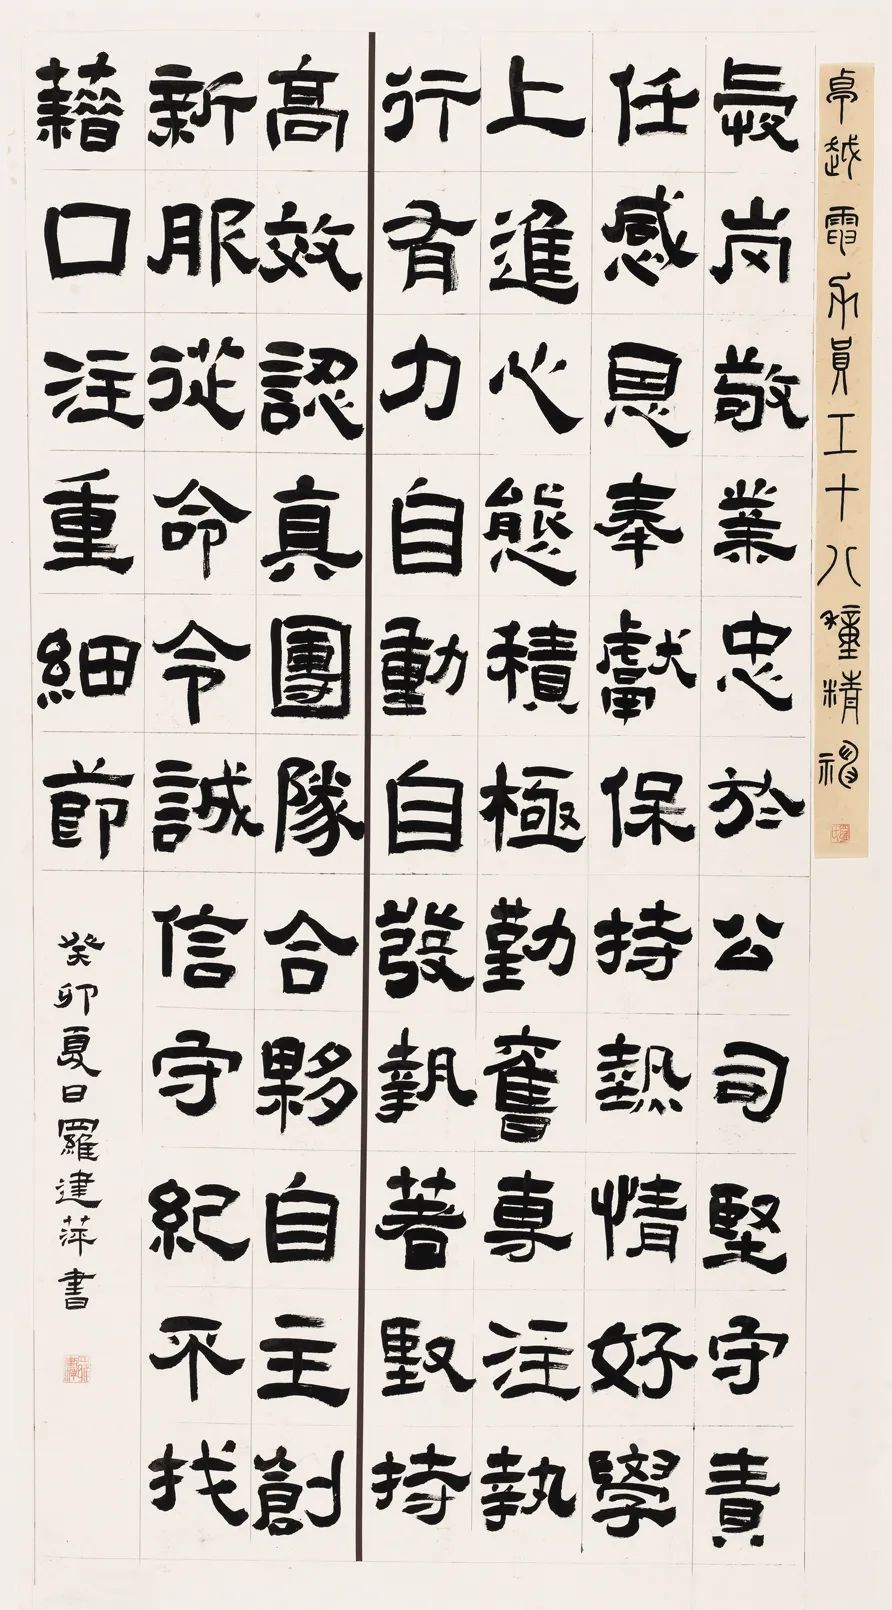 卓越員工十八種精神
愛岗敬業忠於公司堅守責
任感恩奉獻保持熱情好學
上進心態積極勤奮專注執
行有力自動自發執著堅持
高效認真團隊合夥自主創
新服從命令誠信守紀不找
藉口注重細節
癸卯夏日羅建萍書